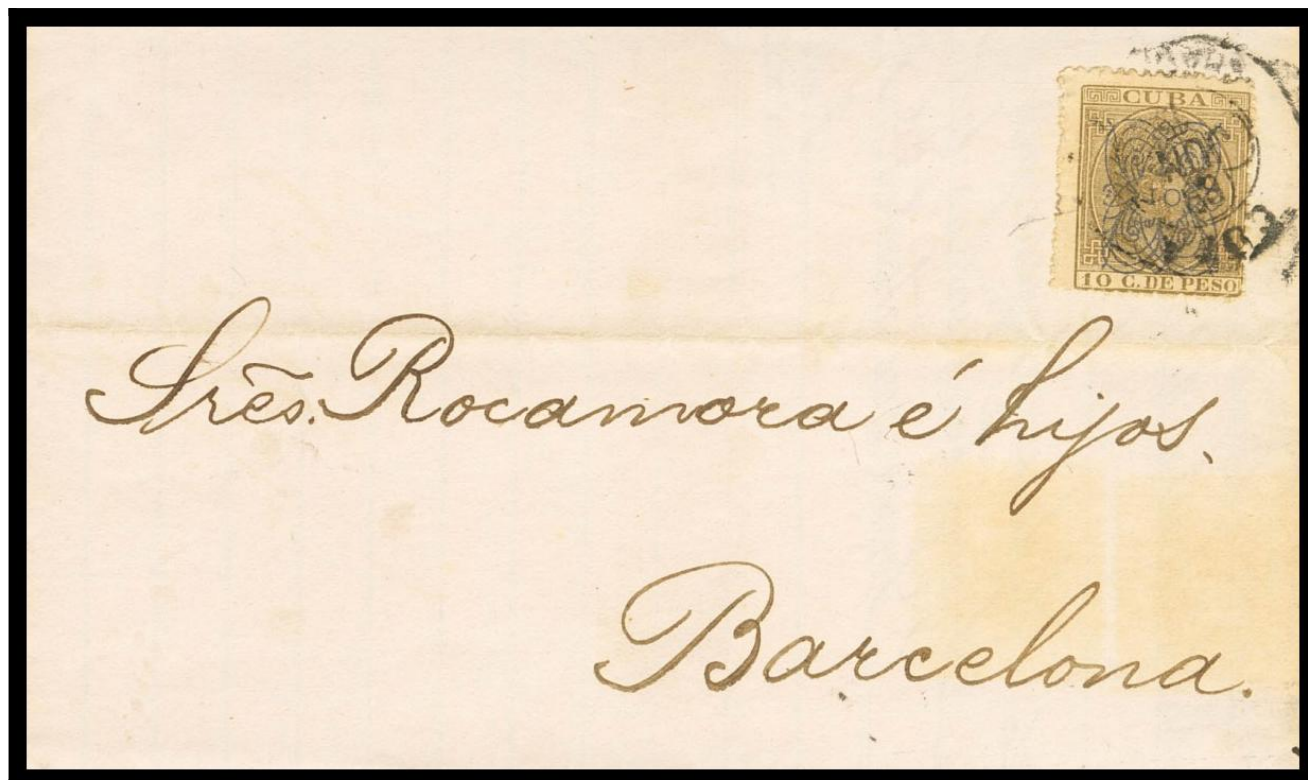 CUBA
10 C. DE PESO
Srẽs. Rocamora é hijos.
Barcelona.